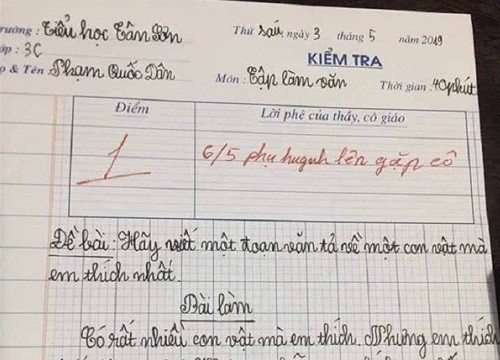 Trường: Tiểu học Tân Sơn Thứ sáu, ngày 3 tháng 5 năm 2019
Lớp: 3C KIỂM TRA
Họ & Tên: Phạm Quốc Dân Môn: Tập làm văn Thời gian: 40 phút
Điểm Lời phê của thầy, cô giáo
1 6/5 phụ huynh lên gặp cô
Đề bài: Hãy viết một đoạn văn tả về một con vật mà
em thích nhất.
Bài làm
Có rất nhiều con vật mà em thích. Nhưng em thích